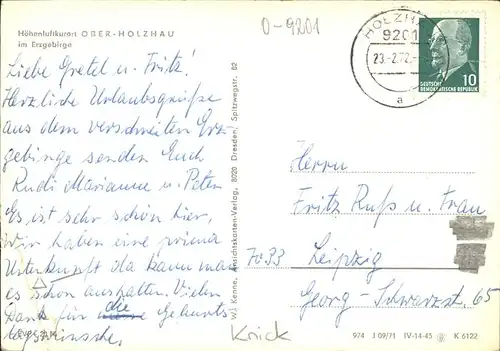 Höhenluftkurort OBER-HOLZHAU
im Erzgebirge
O-9201
HOLZHAU
9201
23.-2.72.-
a
10
DEUTSCHE
DEMOKRATISCHE REPUBLIK
Liebe Gretel u. Fritz!
Herzliche Urlaubsgrüße
aus dem verschneiten Erz
gebirge senden Euch
Rudi Marianne u. Peter
Es ist sehr schön hier,
Wir haben eine prima
Unterkunft da kann man
es schon aushalten. Vielen
Dank für die Geburts-
tagswünsche.
W. Kenne, Ansichtskarten-Verlag, 8020 Dresden, Spitzwegstr. 82
Herrn
Fritz Ruß u. Frau
7033 Leipzig
Georg-Schwarzst. 65
Knick
974 J 09/71 IV-14-45 K 6122